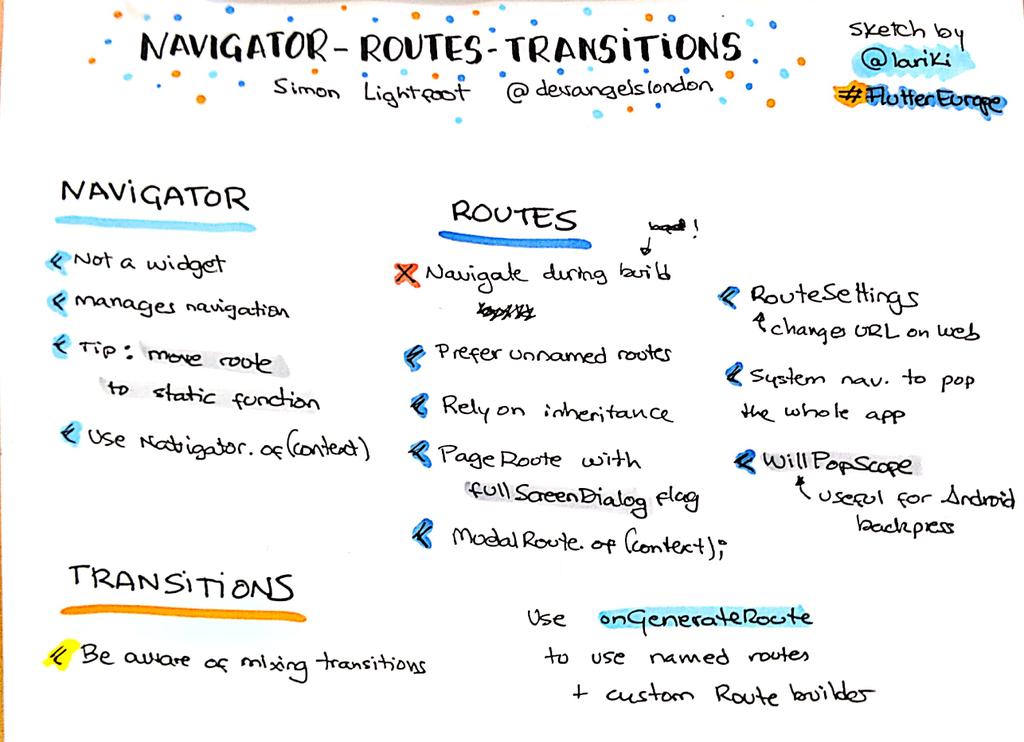 NAVIGATOR - ROUTES - TRANSITIONS
Simon Lightfoot @devangelslondon
Sketch by
@lariki
#FlutterEurope
NAVIGATOR
Not a widget
manages navigation
Tip: move route
to static function
Use Navigator.of(context)
ROUTES
bad!
Navigate during build
Prefer unnamed routes
Rely on inheritance
PageRoute with
fullScreenDialog flag
ModalRoute.of(context);
RouteSettings
changes URL on web
System nav. to pop
the whole app
WillPopScope
useful for Android
backpress
TRANSITIONS
Be aware of mixing transitions
Use onGenerateRoute
to use named routes
+ custom Route builder